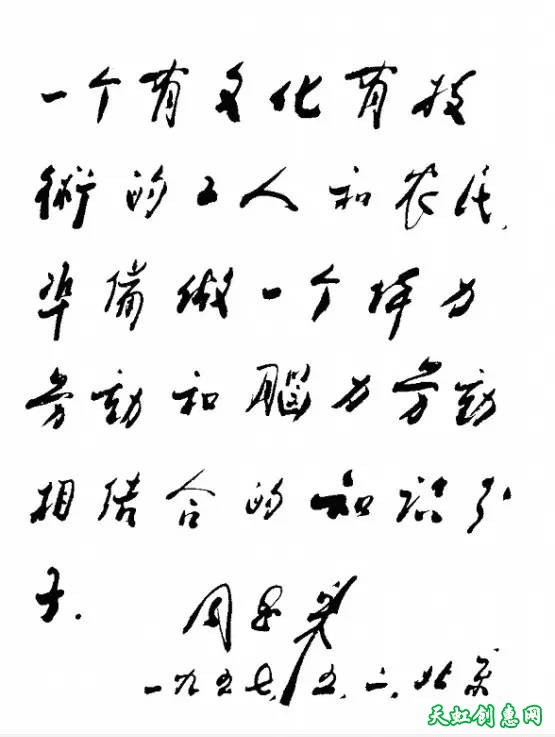 一个有文化有技
術的工人和农民,
準備做一个体力
劳动和腦力劳动
相结合的知识分
子.
周恩来
一九五七,五,二,北京
天虹创意网